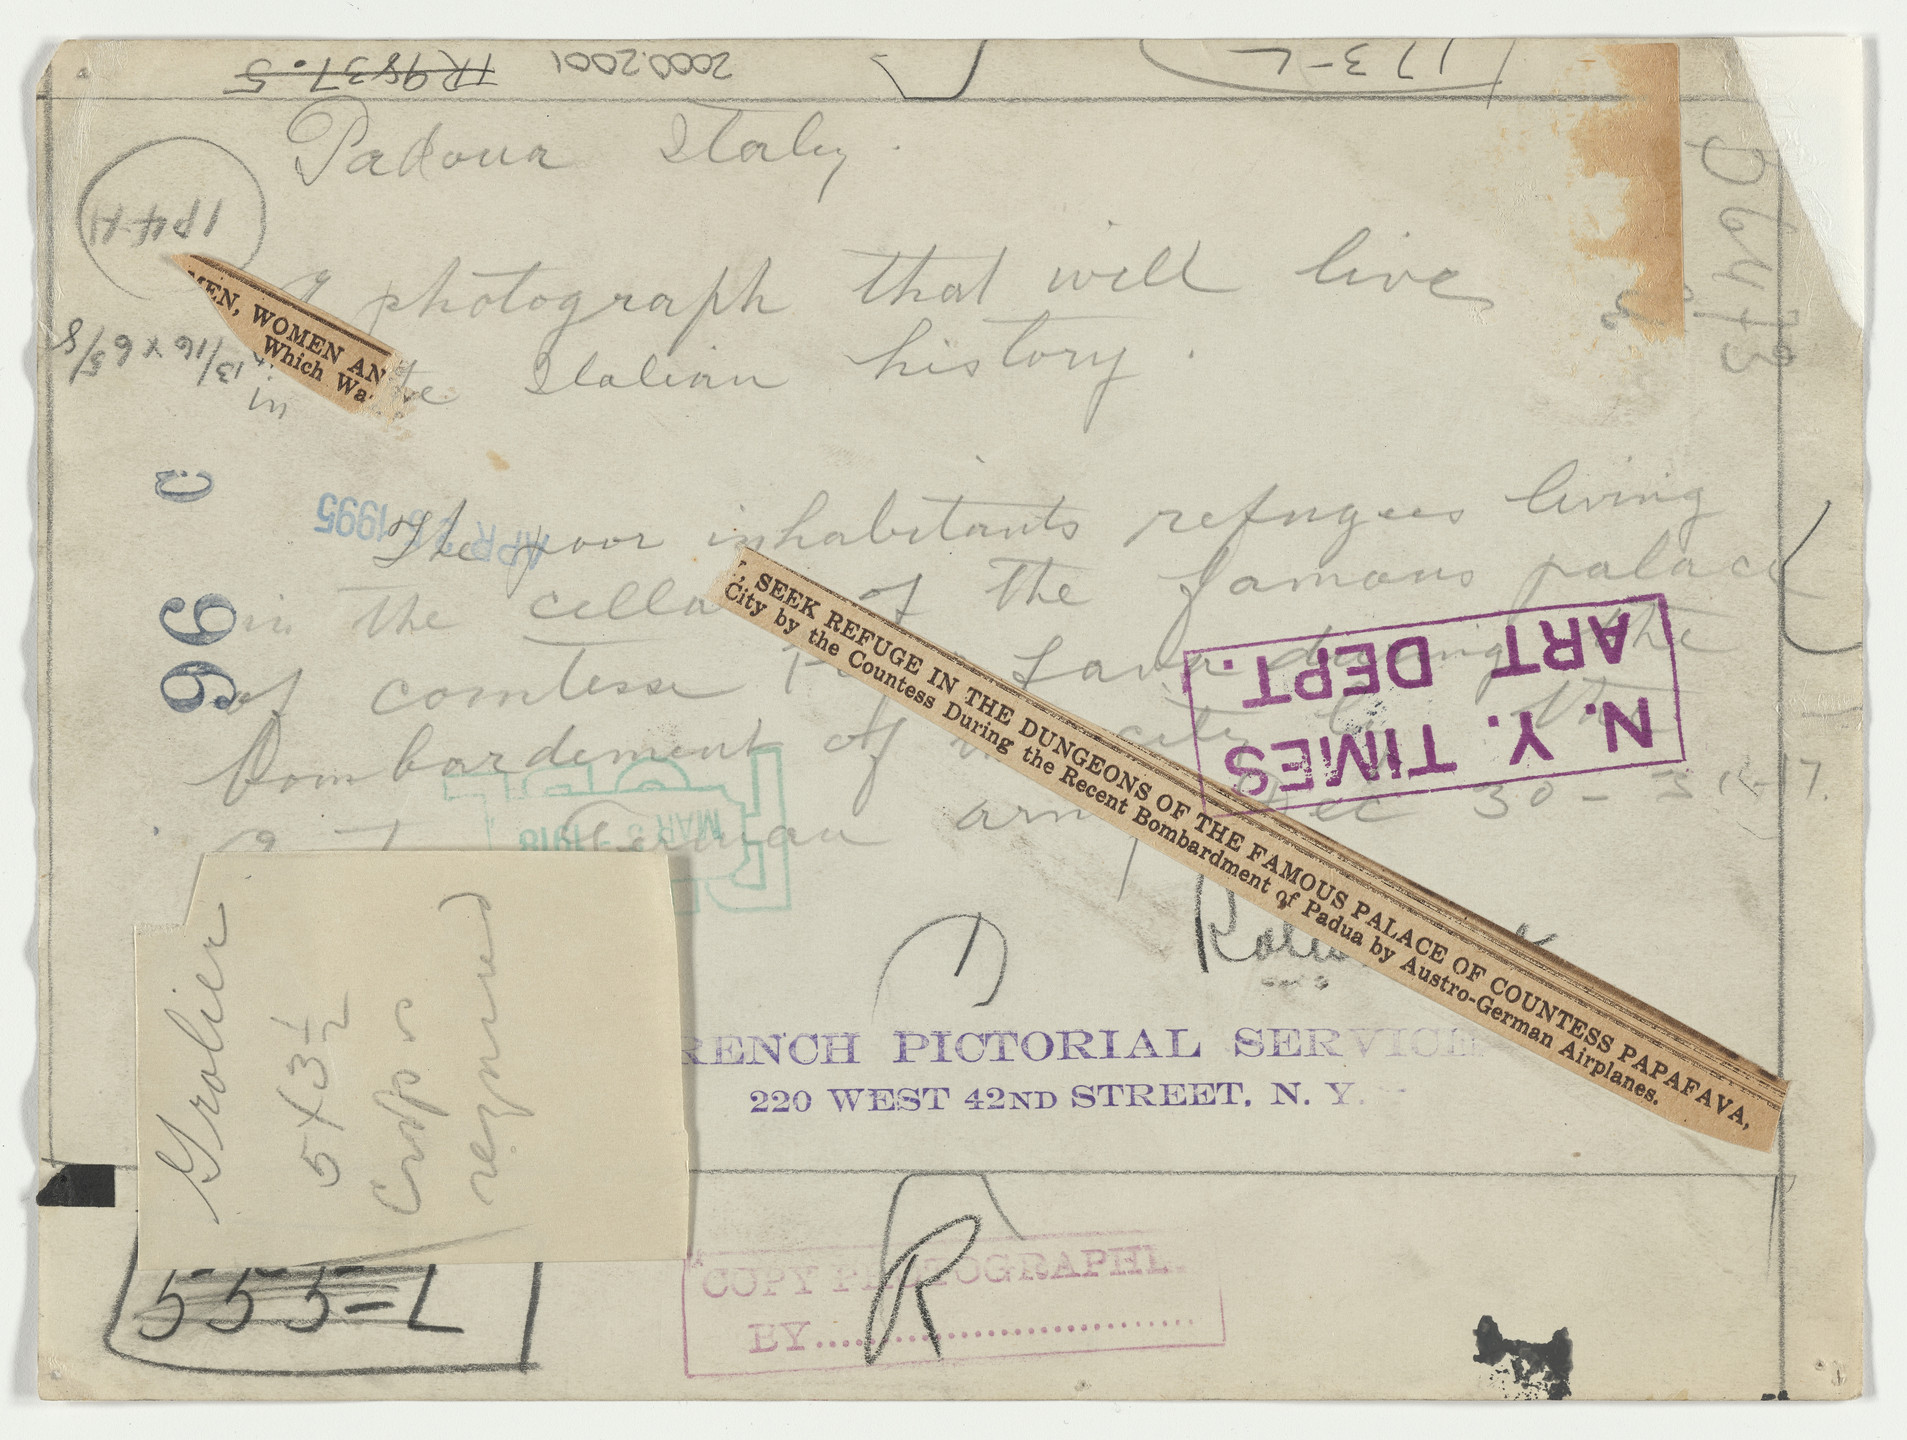 TR9837.5
2000.2001
173-L
Padova Italy.
1P4H
D6473
A photograph that will live
in the Italian history.
13/16 x 6 5/8
in
MEN, WOMEN AN
Which Wa
96 C
APR 1995
The poor inhabitants refugees living
in the cella of the famous palace
of comtesse fava during the
bombardement of city by the
German arm Dec 30-31-17.
, SEEK REFUGE IN THE DUNGEONS OF THE FAMOUS PALACE OF COUNTESS PAPAFAVA,
City by the Countess During the Recent Bombardment of Padua by Austro-German Airplanes.
N. Y. TIMES
ART DEPT.
MAR 3 1918
RENCH PICTORIAL SERVICE
220 WEST 42ND STREET, N. Y.
Grolier
5 x 3 1/2
Crops
required
555-L
R
COPY PHOTOGRAPH
BY